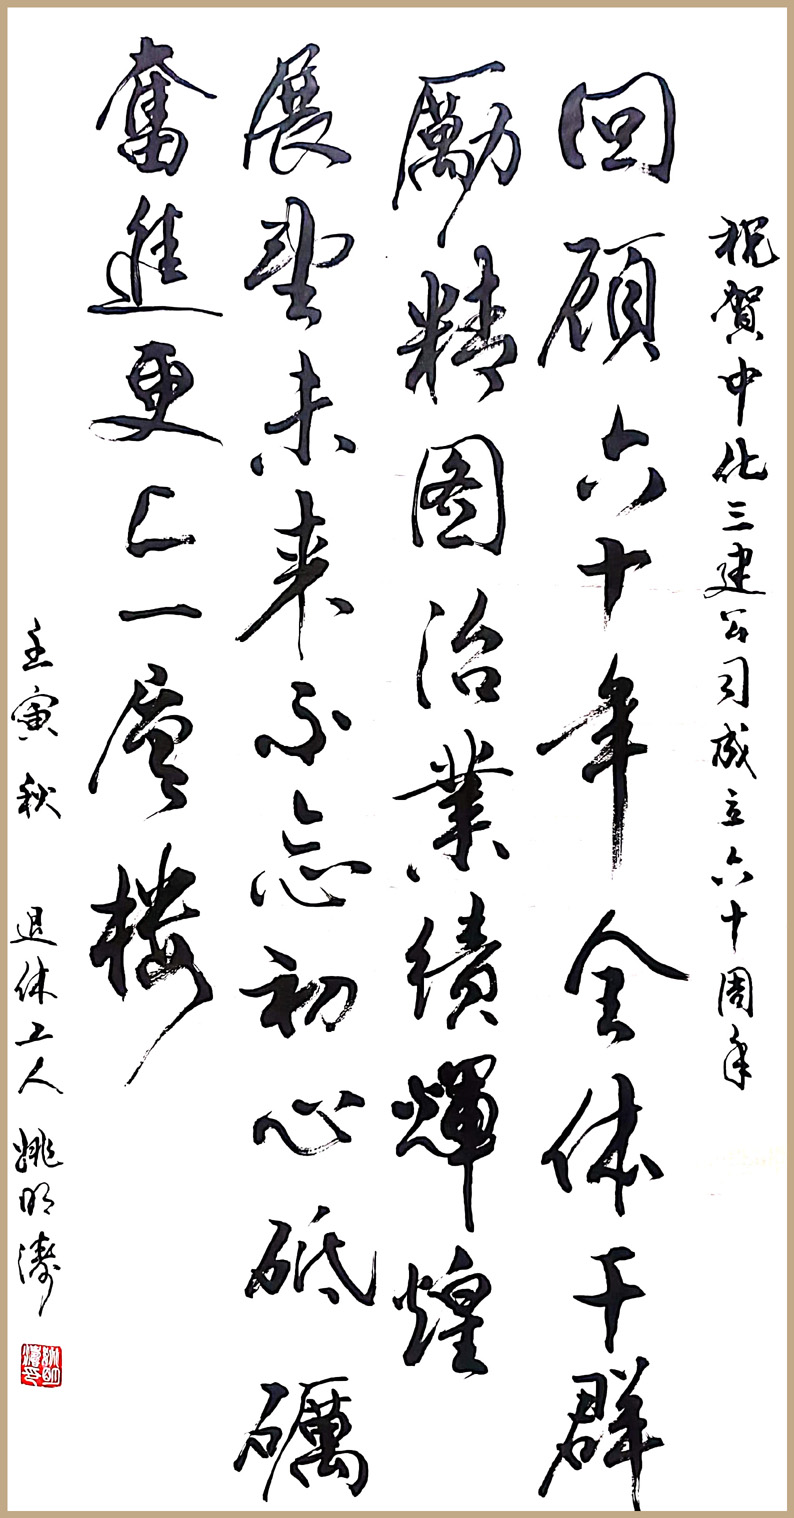 祝賀中化三建公司成立六十周年
回顾六十年全体干群
勵精图治業績輝煌
展望未来不忘初心砥礪
奮進更上一层楼
壬寅秋 退休工人 姚明濤